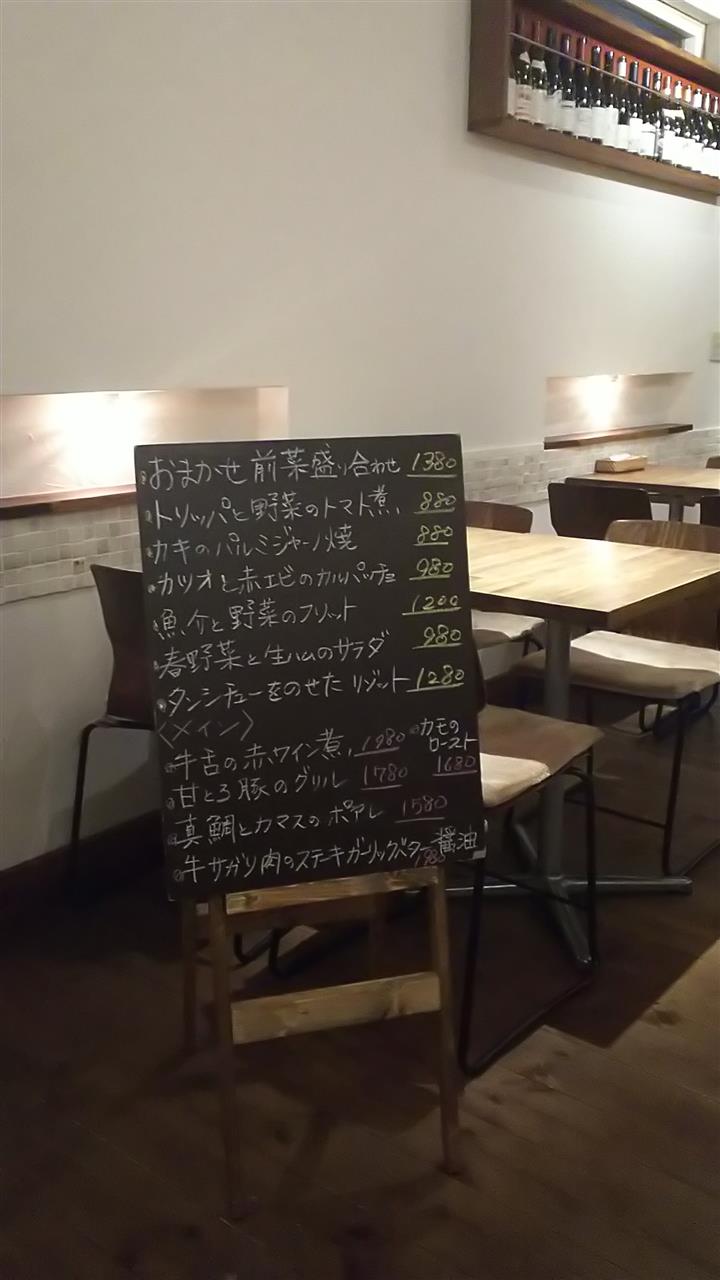 おまかせ前菜盛り合わせ 1380
トリッパと野菜のトマト煮 880
カキのパルミジャーノ焼 880
カツオと赤エビのカルパッチョ 980
魚介と野菜のフリット 1200
春野菜と生ハムのサラダ 980
タンシチューをのせたリゾット 1280
〈メイン〉
牛舌の赤ワイン煮 1980
カモの
ロースト 1680
甘とろ豚のグリル 1780
真鯛とカマスのポアレ 1580
牛サガリ肉のステーキガーリックバター醤油